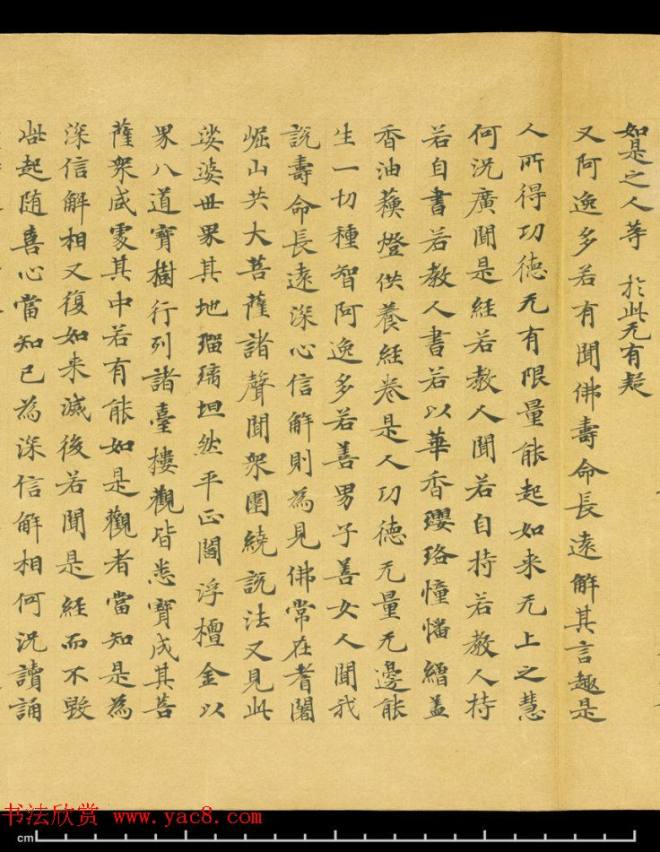 如是之人等　於此无有疑
又阿逸多若有聞佛壽命長遠解其言趣是
人所得功德无有限量能起如来无上之慧
何況廣聞是經若教人聞若自持若教人持
若自書若教人書若以華香瓔珞憧幡繒盖
香油蘓燈供養經卷是人功德无量无邊能
生一切種智阿逸多若善男子善女人聞我
說壽命長遠深心信解則為見佛常在耆闍
崛山共大菩薩諸聲聞衆圍繞說法又見此
娑婆世界其地瑠璃坦然平正閻浮檀金以
界八道寶樹行列諸臺樓觀皆悉寶成其菩
薩衆咸處其中若有能如是觀者當知是為
深信解相又復如来滅後若聞是經而不毀
呰起随喜心當知已為深信解相何況讀誦
书法欣赏 www.yac8.com
cm